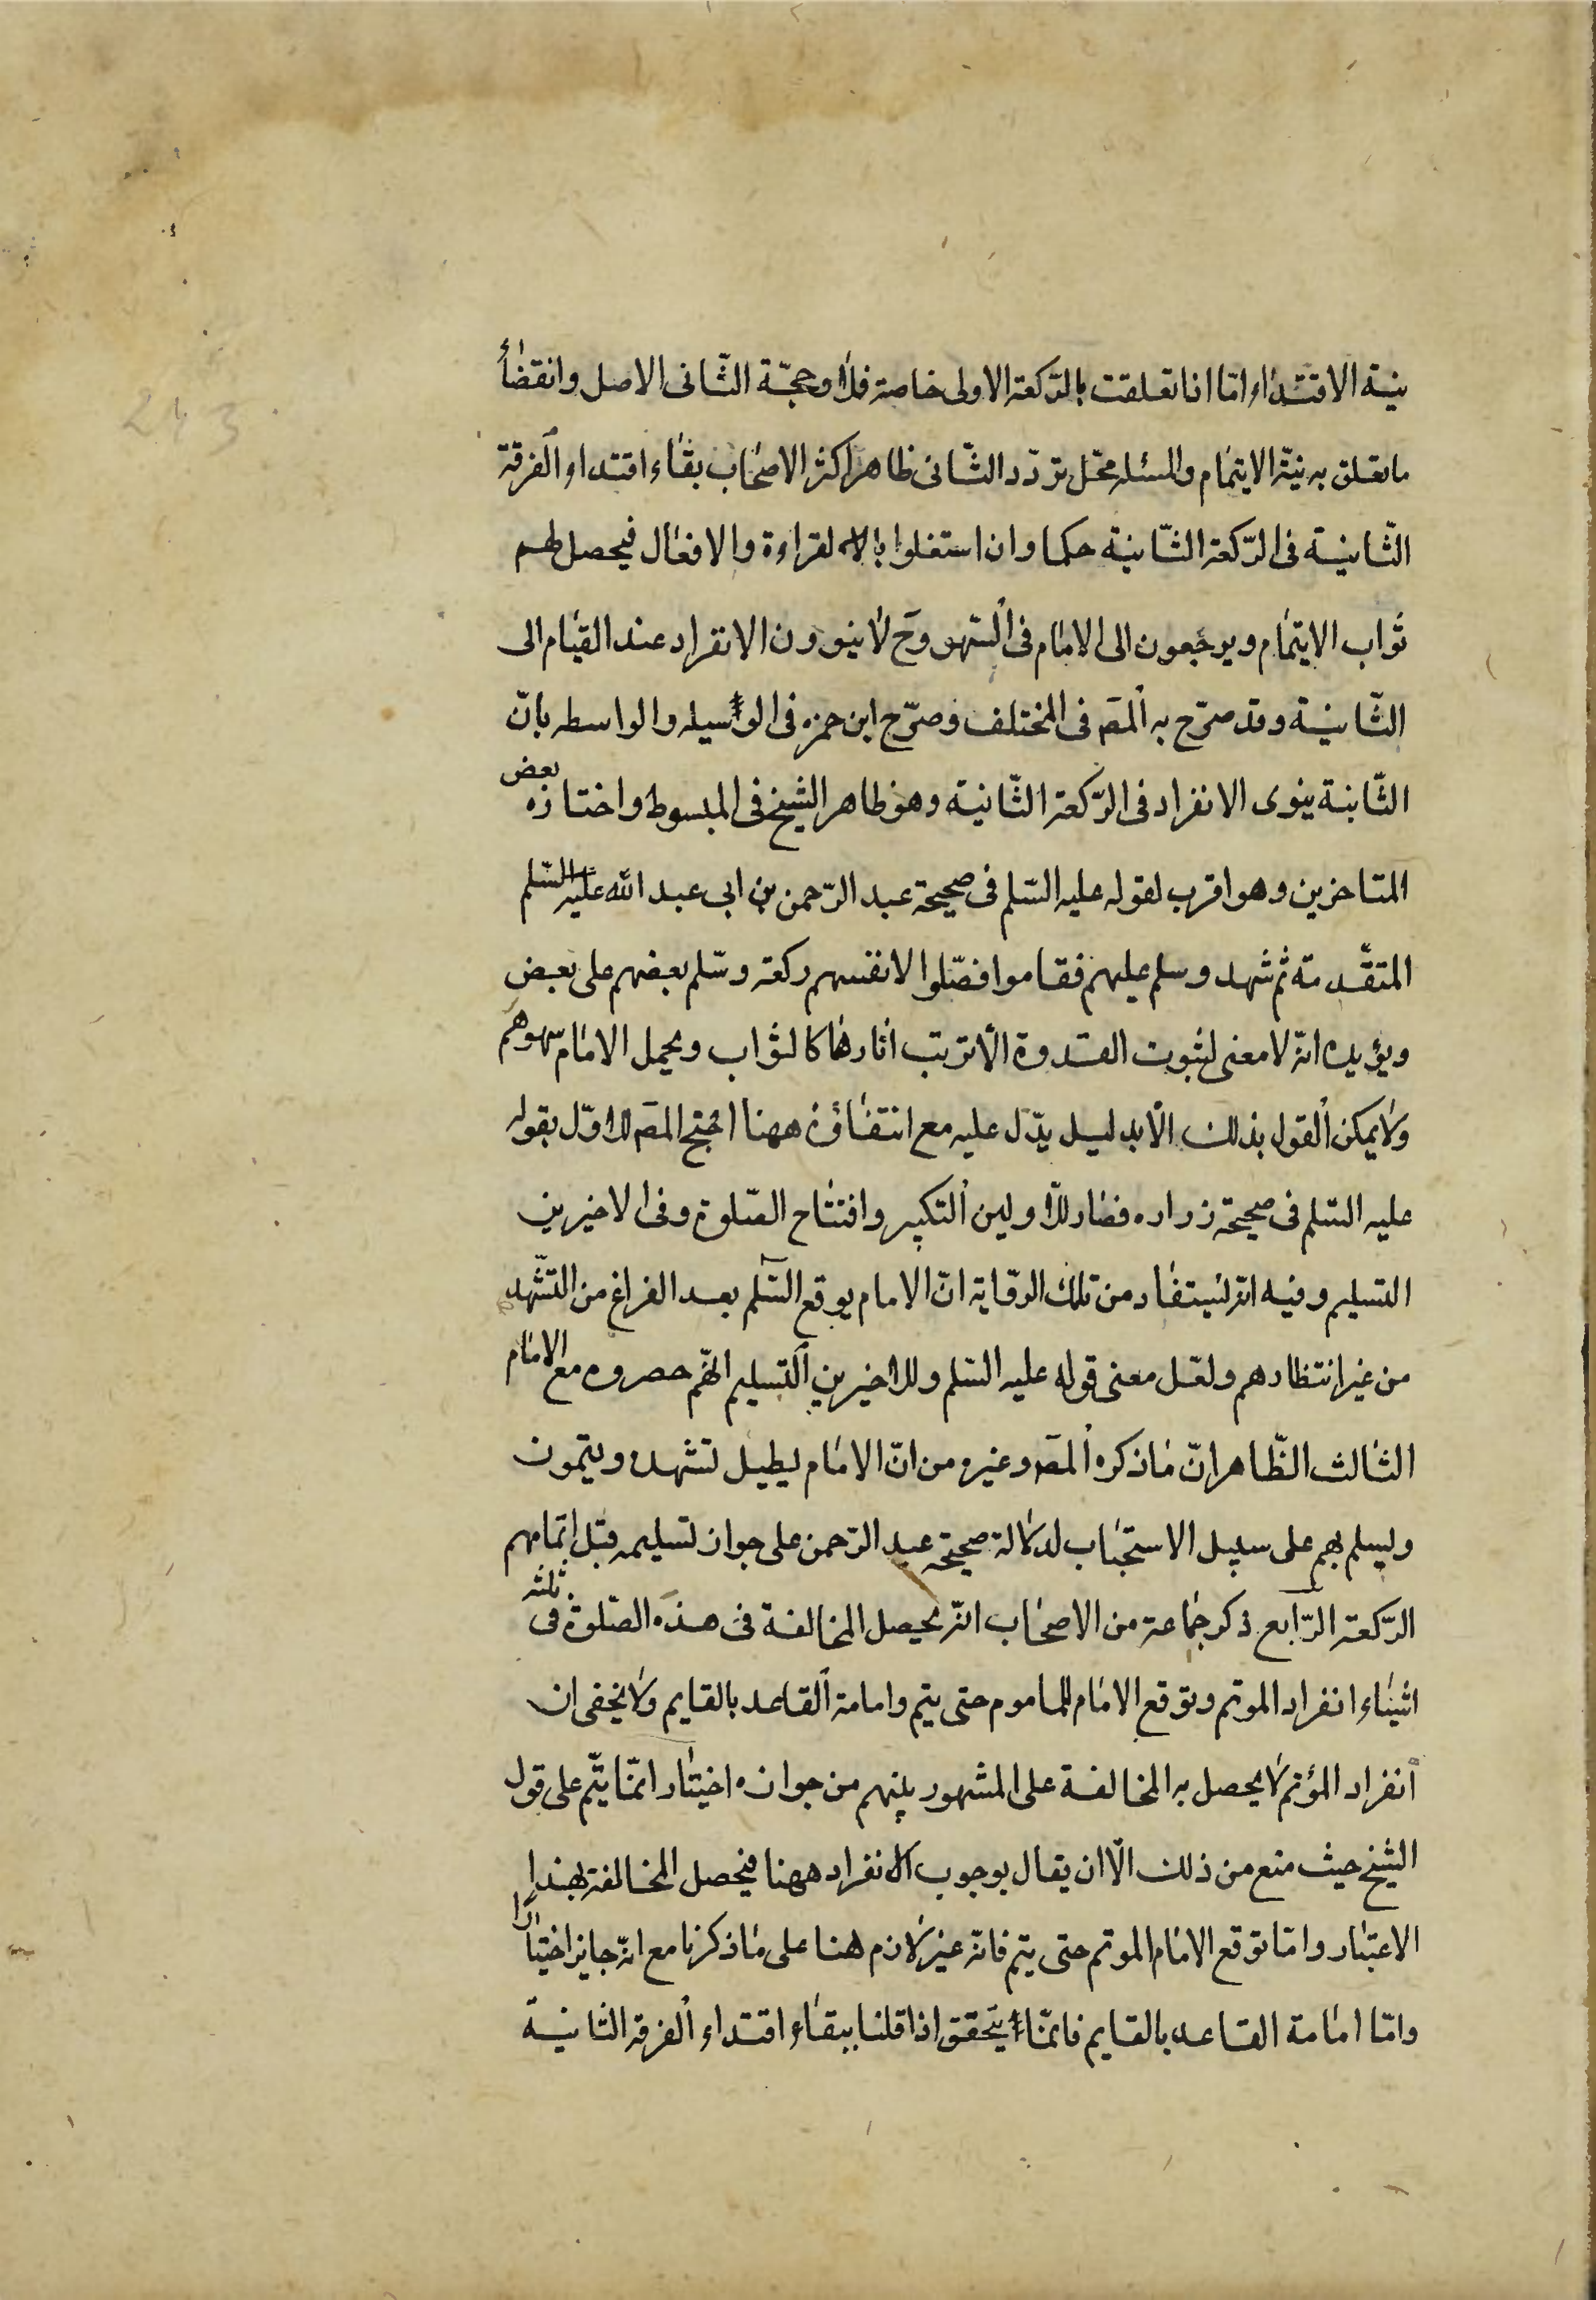 نية الاقتداء امّا اذا تعلقت بالرّكعة الاولى خاصة فلا وحجّة الثّانى الاصل وانقضاء
ما تعلق به نيّة الايتمام والمسئله محّل تردّد الثّانى ظاهر اكثر الاصحاب بقاء اقتداء الفرقة
الثّانية فى الرّكعة الثّانية حكما وان استقلوا بالقراءة والافعال فيحصل لهم
ثواب الايتمام ويرجعون الى الامام فى السّهو وح لا ينوون الانفراد عند القيام الى
الثّانية وقد صرّح به المصَ فى المختلف وصرّح ابن حمزه فى الوسيله والواسطه بانّ
الثّانية ينوى الانفراد فى الرّكعة الثّانية وهو ظاهر الشيخ فى المبسوط واختاره بعض
المتاخرين وهو اقرب لقوله عليه السّلم فى صحيحة عبد الرّحمن بن ابى عبد الله عليه السّلم
المتقّدمة ثم تشهد وسلم عليهم فقاموا فصّلوا لانفسهم ركعة وسّلم بعضهم على بعض
ويؤيده انّه لا معنى لثبوت القدوة الّا ترتب اثارها كالثواب ويحمل الامام سهوهم
ولا يمكن القول بذلك الّا بدليل يدّل عليه مع انتفاؤه ههنا احتج المصَ للاوّل بقوله
عليه السّلم فى صحيحة زراره فصار للاولين التكبير وافتتاح الصّلوة وفى الاخيرين
التسليم وفيه انّه ليستفاد من تلك الرّواية انّ الامام يوقع السّلم بعد الفراغ من التشّهد
من غير انتظارهم ولعّل معنى قوله عليه السّلم وللاخيرين التسليم انّهم حصروه مع الامام
الثالث الظّاهر انّ ما ذكره المصَ وغيره من انّ الامام يطيل تشهده ويتمون
ويسلم بهم على سبيل الاستحباب لدلالة صحيحة عبد الرّحمن على جواز تسليمه قبل اتمامهم
الرّكعة الرّابع ذكر جماعة من الاصحاب انّه يحصل المخالفة فى هذه الصّلوة فى ثلثه
اشياء انفراد الموتم وتوقع الامام للماموم حتى يتم وامامة القاعد بالقايم ولا يخفى ان
انفراد المؤتم لا يحصل به المخالفة على المشهور بينهم من جوازه اختيار انمّا يتّم على قول
الشيخ حيث منع من ذلك الّا ان يقال بوجوب الانفراد ههنا فيحصل المخالفة بهذا
الاعتبار وامّا توقع الامام الموتم حتى يتم فانّه غير لازم هنا على ما ذكرنا مع انّه جايز اختيارًا
وامّا امامة القاعد بالقايم فانمّا يتحقق اذا قلنا ببقاء اقتداء الفرقه الثانية